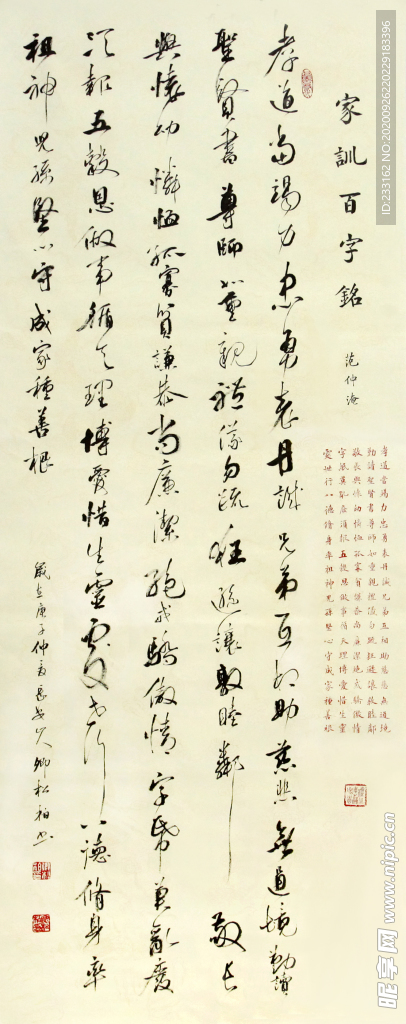 家訓百字銘
范仲淹
孝道當竭力忠勇表丹誠兄弟互相助慈悲無過境
勤讀聖賢書尊師如重親禮義勿疏狂遜讓敦睦鄰
敬長與懷幼憐恤孤寡貧謙恭尚廉潔絕戒驕傲情
字紙莫亂廢須報五穀恩做事循天理博愛惜生靈
處世行八德修身率祖神兒孫堅心守成家種善根
孝道當竭力忠勇表丹誠兄弟互相助慈悲無過境勤讀
聖賢書尊師如重親禮義勿疏狂遜讓敦睦鄰敬長
與懷幼憐恤孤寡貧謙恭尚廉潔絕戒驕傲情字紙莫亂廢
須報五穀恩做事循天理博愛惜生靈處世行八德脩身率
祖神兒孫堅心守成家種善根
歲在庚子仲夏卿松柏書
ID:233162 NO:20200926220229183396
昵享网 www.nipic.cn